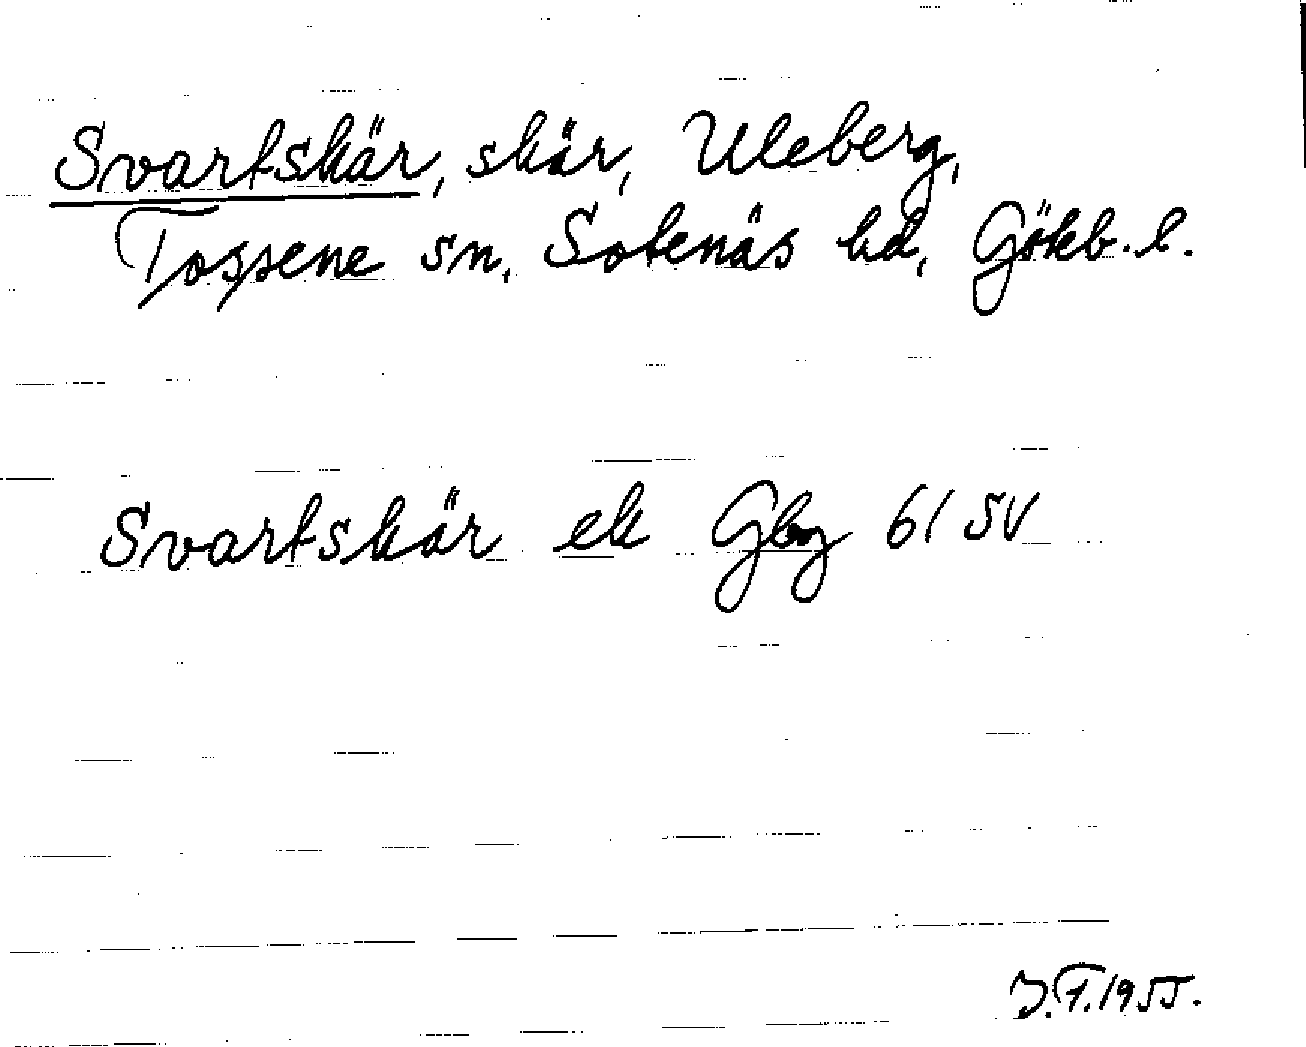 Svartskär, skär, Uleberg,
Tossene sn, Sotenäs hd, Götebg. l.
Svartskär ek Gbg 61 SV
J.F. 1955.